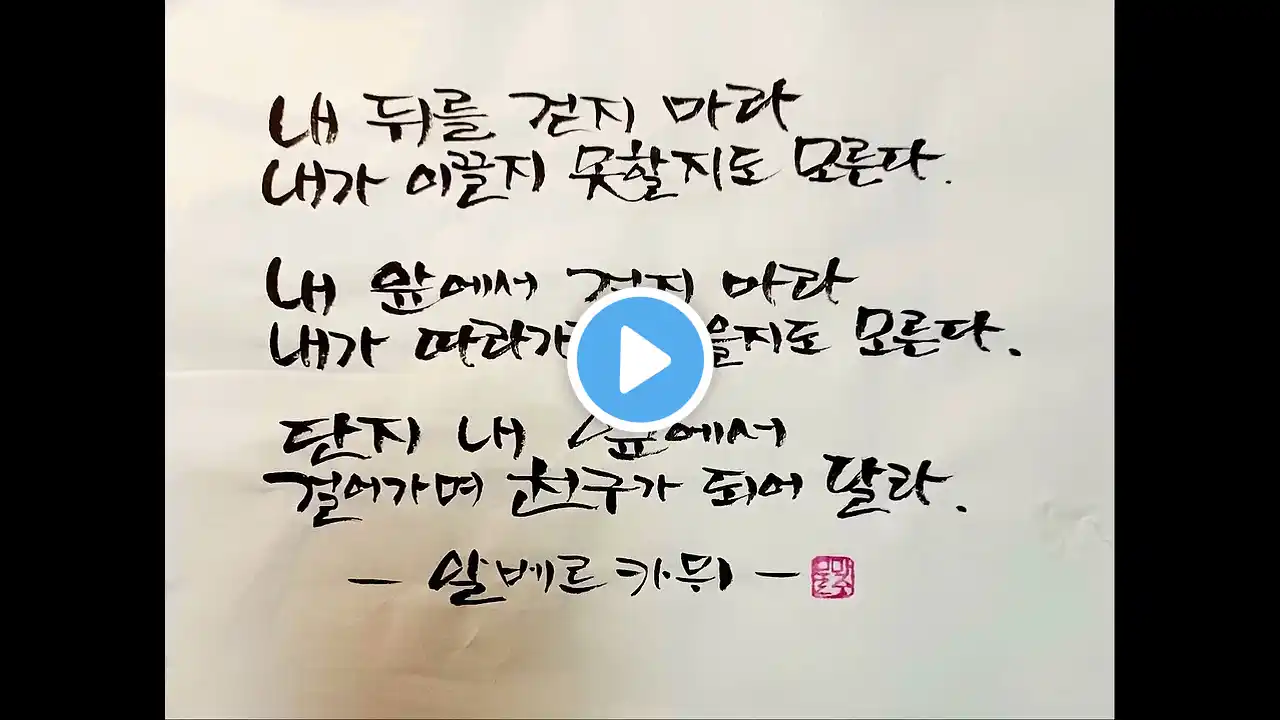 내 뒤를 걷지 마라
내가 이끌지 못할지도 모른다.
내 앞에서 걷지 마라
내가 따라가 을지도 모른다.
단지 내
걸어가며 친구가 되어 달라.
- 알베르 카뮈 -